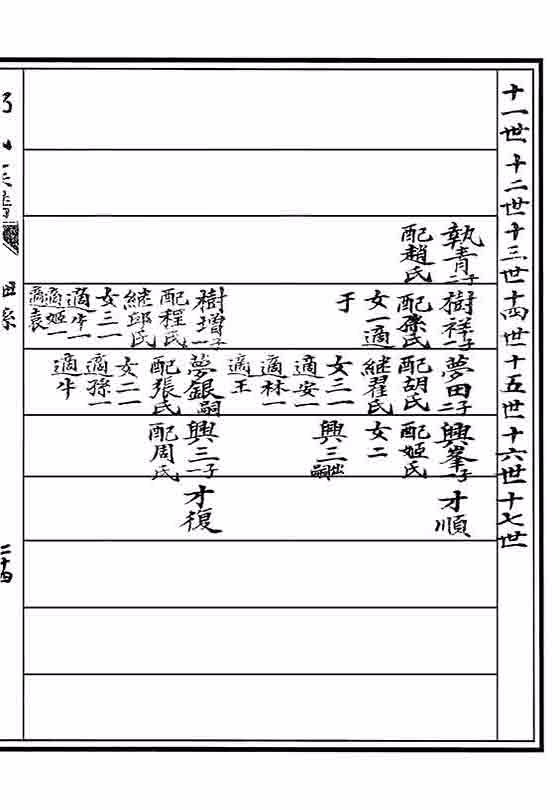 十一世
十二世
十三世
十四世
十五世
十六世
十七世
執青二子
配趙氏
樹祥一子
配孫氏
女一適
于
樹增一子
配程氏
繼邱氏
女三一
適牛一
適姬一
適袁
夢田二子
配胡氏
継翟氏
女三一
適安一
適林一
適王
夢銀嗣
配張氏
女二一
適孫一
適牛
興峯一子
配姬氏
女二
興三出嗣
興三一子
配周氏
才順
才復
世系
二十四